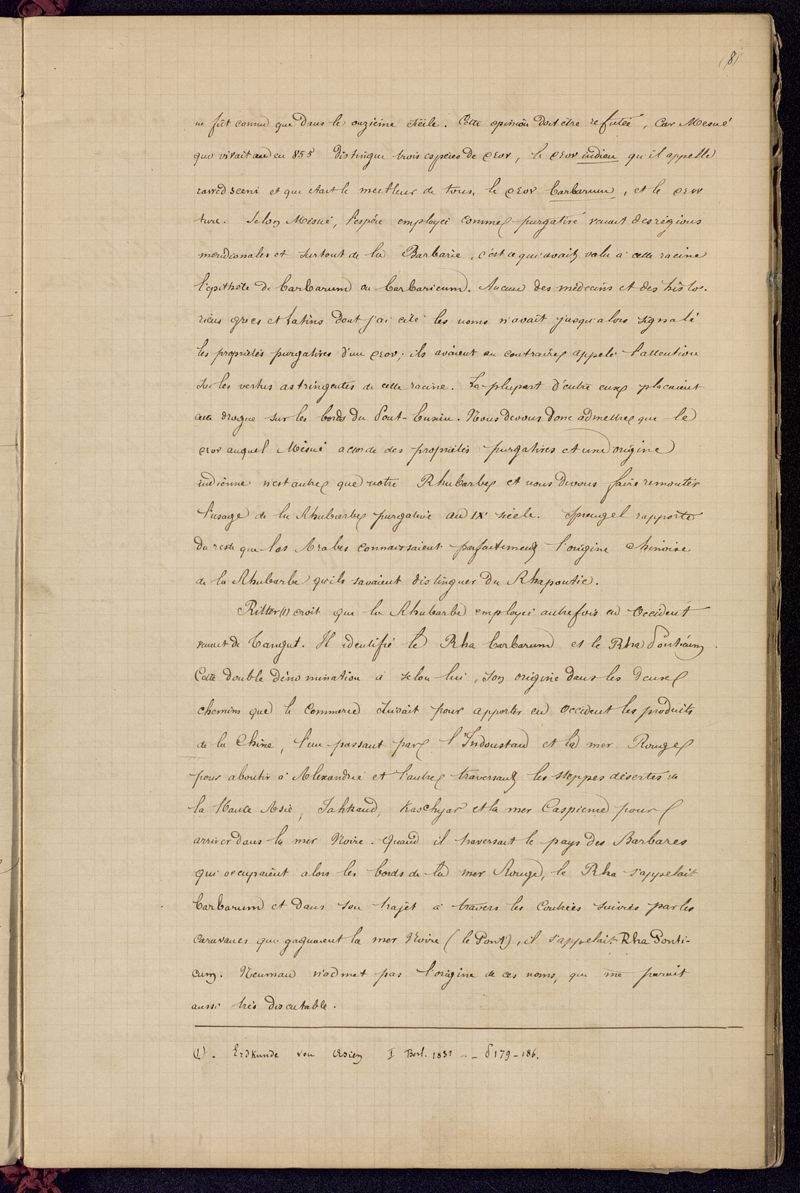 (8)
ne fût connu que dans le onzième siècle. Cette opinion doit être réfutée, car Mesué
qui vivait en 855 distingue trois espèces de ρεον, le ρεον indien qu'il appelle
raved sceni et qui était le meilleur de tous, le ρεον barbarum, et le ρεον
turc. Selon Mésué, l'espèce employée comme purgative venait des régions
méridionales et surtout de la Barbarie, c'est ce qui avait valu à cette racine
l'épithète de barbarum ou barbaricum. Aucun des médecins et des histo-
riens grecs et latins dont j'ai cité les noms n'avait jusqu'alors signalé
les propriétés purgatives d'un ρεον; ils avaient au contraire appelé l'attention
sur les vertus astringentes de cette racine. La plupart d'entre eux plaçaient
cette drogue sur les bords du Pont-Euxin. Nous devons donc admettre que le
ρεον auquel Mésué accorde des propriétés purgatives et une origine
indienne n'est autre que notre Rhubarbe et nous devons faire remonter
l'usage de la Rhubarbe purgative au IXe siècle. Sprengel rapporte
du reste que les Arabes connaissaient parfaitement l'origine chinoise
de la Rhubarbe qu'ils savaient distinguer du Rhapontic.
Ritter (1) croit que la Rhubarbe employée autrefois en Occident
venait de Tangut. Il identifie le Rha barbarum et le Rha Ponticum.
Cette double dénomination a selon lui, son origine dans les deux
chemins que le commerce suivait pour apporter en Occident les produits
de la Chine, l'un passant par l'Indoustan et la mer Rouge
pour aboutir à Alexandrie et l'autre traversant les steppes désertes de
la Haute Asie, Jahkand, Kaschgar et la mer Caspienne pour
arriver dans la mer Noire. Quand il traversait le pays des Barbares
qui occupaient alors les bords de la mer Rouge, le Rha s'appelait
barbarum et dans son trajet à travers les contrées suivies par les
caravanes qui gagnaient la mer Noire (le Pont), il s'appelait Rha Ponti-
cum. Neuman n'admet pas l'origine de ces noms, qui me paraît
aussi très discutable.
(1). Erdkunde von Asien I Berl. 1831 - - S 179-186.